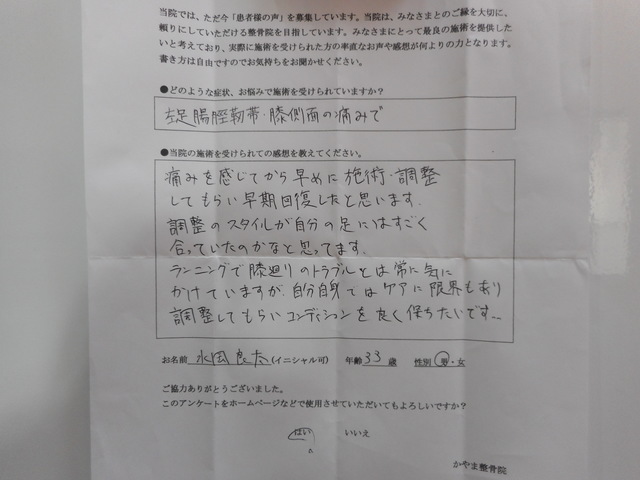 当院では、ただ今「患者様の声」を募集しています。当院は、みなさまとのご縁を大切に、
頼りにしていただける整骨院を目指しています。みなさまにとって最良の施術を提供した
いと考えており、実際に施術を受けられた方の率直なお声や感想が何よりの力となります。
書き方は自由ですのでお気持ちをお聞かせください。
●どのような症状、お悩みで施術を受けられていますか？
左足腸脛靭帯・膝側面の痛みで
●当院の施術を受けられての感想を教えてください。
痛みを感じてから早めに施術・調整
してもらい早期回復したと思います.
調整のスタイルが自分の足にはすごく
合っていたのかなと思ってます.
ランニングで膝廻りのトラブルとは常に気に
かけていますが、自分自身ではケアに限界もあり
調整してもらいコンディションを良く保ちたいです…
お名前 水岡良太 (イニシャル可) 年齢 33 歳 性別 男・女
ご協力ありがとうございました。
このアンケートをホームページなどで使用させていただいてもよろしいですか？
はい いいえ
かやま整骨院